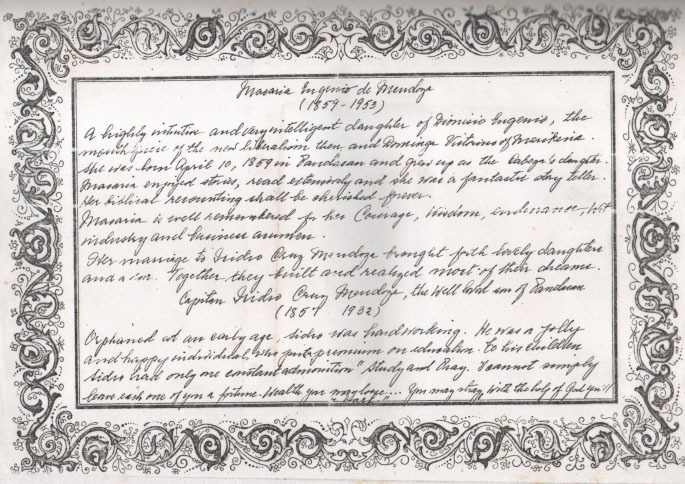 Macaria Eugenio de Mendoza
(1859-1953)
A highly intuitive and very intelligent daughter of Eugenio, the
mouth piece of the new liberalism then, and Dominga Victorino of Marikina.
She was born April 10, 1859 in Pandacan and grew up as the Cabeza's daughter.
Macaria enjoyed stories, read extensively and she was a fantastic day teller.
Her biblical recounting shall be cherished forever.
Macaria is well remembered for her Courage, Wisdom, endurance, Wit
industry and business acumen.
Her marriage to Isidro Cruz Mendoza brought forth lovely daughters
and a son. Together they built and realized most of their dreams.
Capitan Isidro Cruz Mendoza, the Well loved son of Pandacan
(1857 1932)
Orphaned at an early age, Isidro was hardworking. He was a jolly
and happy individual, who puts premium on education. To his children
Isidro had only one constant admonition "Study and Pray. I cannot simply
leave each one of you a fortune. Wealth you may lose... You may stray, with the help of God you'll